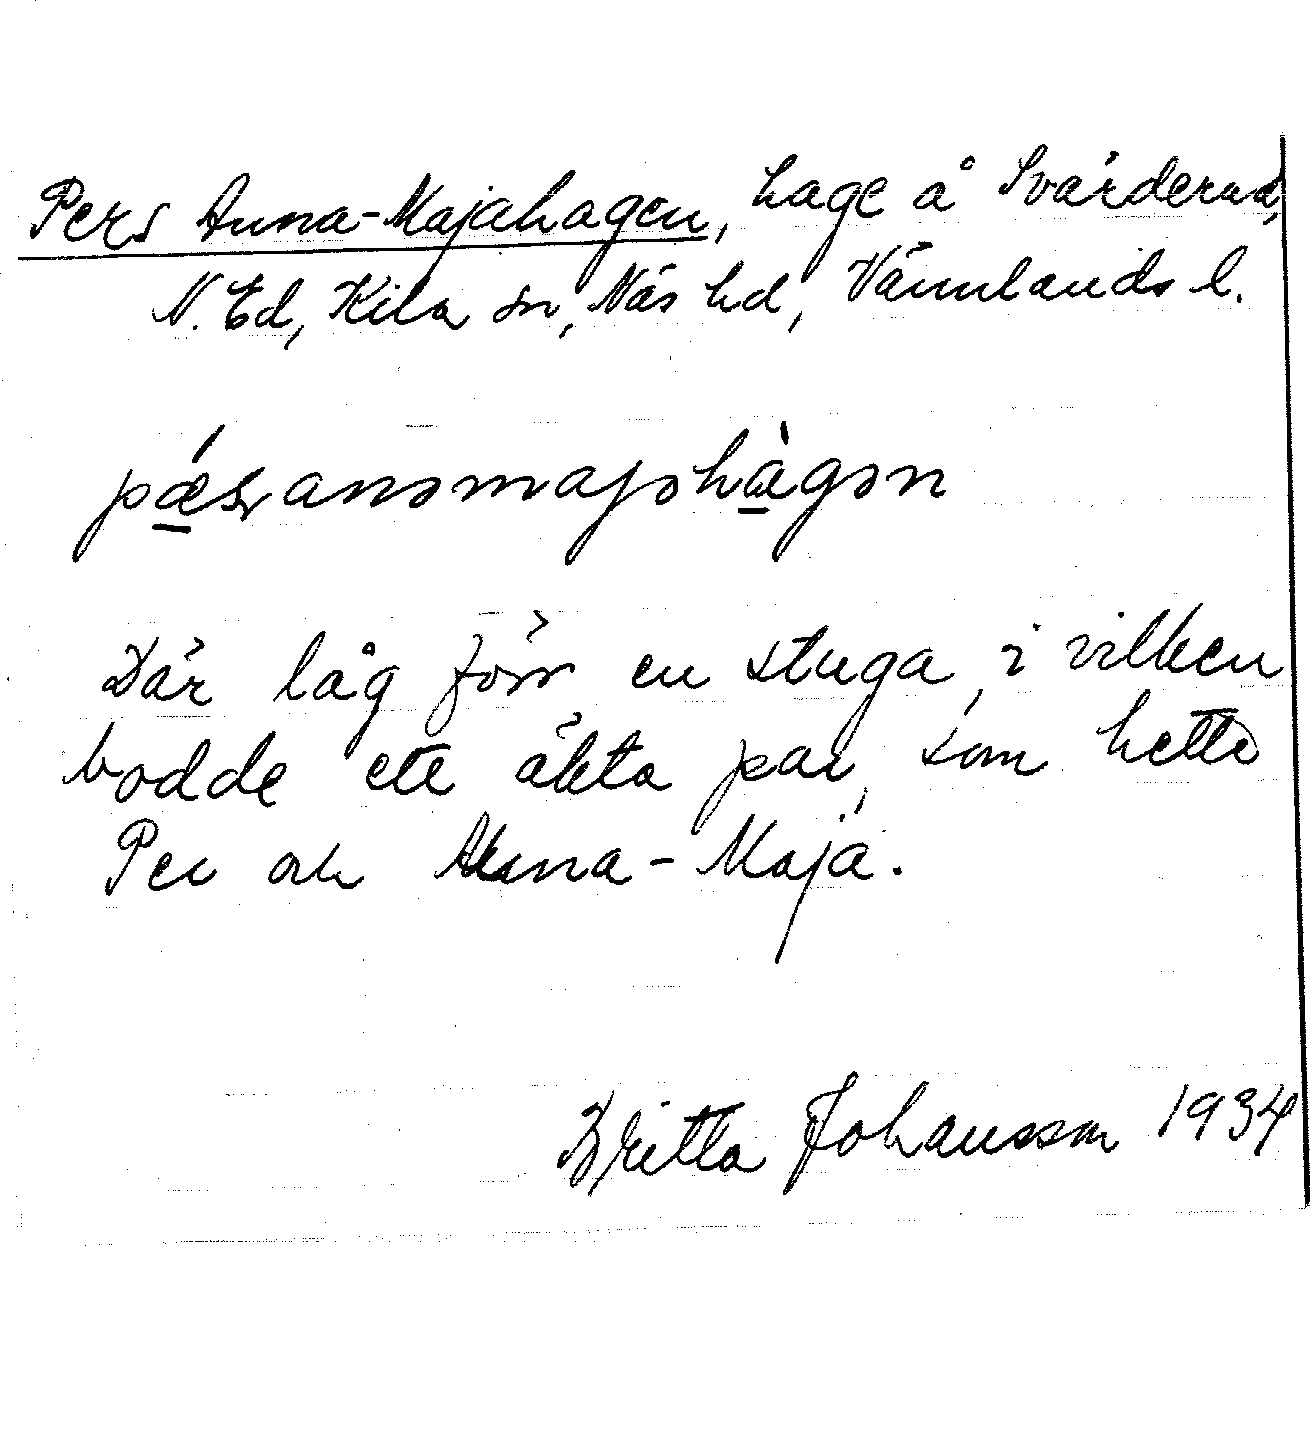 Pers Anna-Majahagen, hage å Svärderud,
N. Ed, Kila sn, Näs hd, Värmlands l.
pǽsʀanəmajəhàgən
Där låg förr en stuga, i vilken
bodde ett äkta par, som hette
Per och Anna-Maja.
Britta Johansson 1934